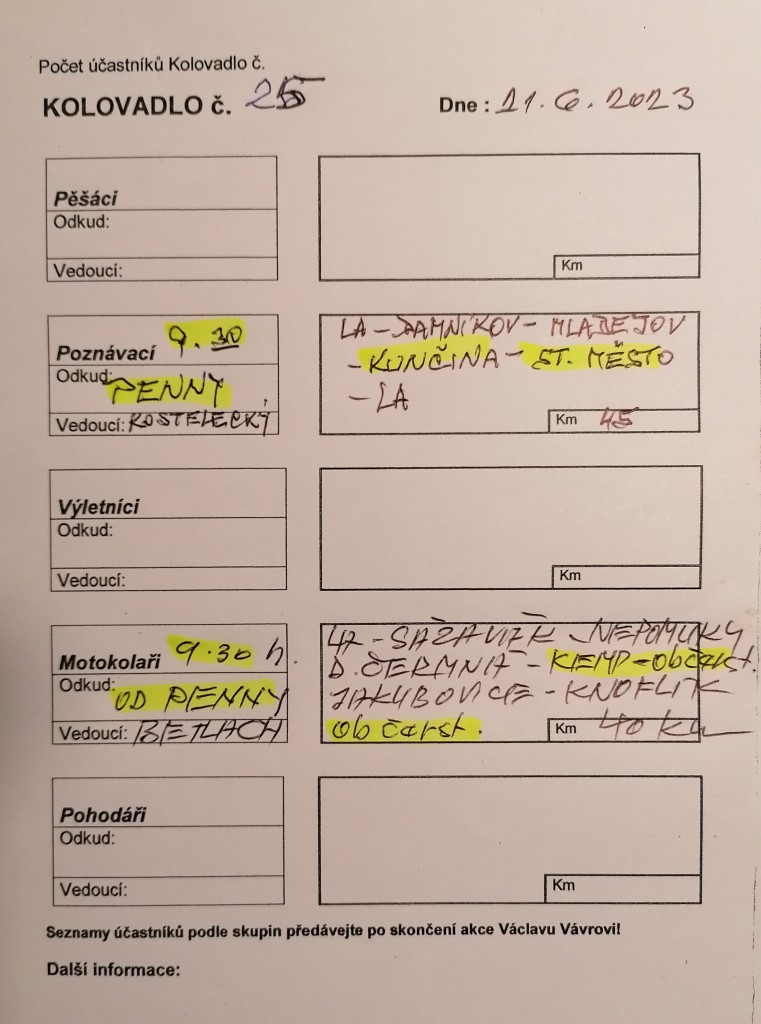 Počet účastníků Kolovadlo č.
KOLOVADLO č. 25
Dne : 21.6.2023
Pěšáci
Odkud:
Vedoucí:
Km
Poznávací 9.30
Odkud: PENNY
Vedoucí: KOSTELECKÝ
LA - DAMNÍKOV - MLADĚJOV
- KUNČINA - ST. MĚSTO
- LA
Km 45
Výletníci
Odkud:
Vedoucí:
Km
Motokolaři 9.30 h.
Odkud: OD PENNY
Vedoucí: BETLACH
LA - SÁZAVIŽK - NEPOMUKY
D. ČERMNÁ - KEMP - občerst.
JAKUBOVICE - KNOFLIK
Občerst.
Km 40 km
Pohodáři
Odkud:
Vedoucí:
Km
Seznamy účastníků podle skupin předávejte po skončení akce Václavu Vávrovi!
Další informace: